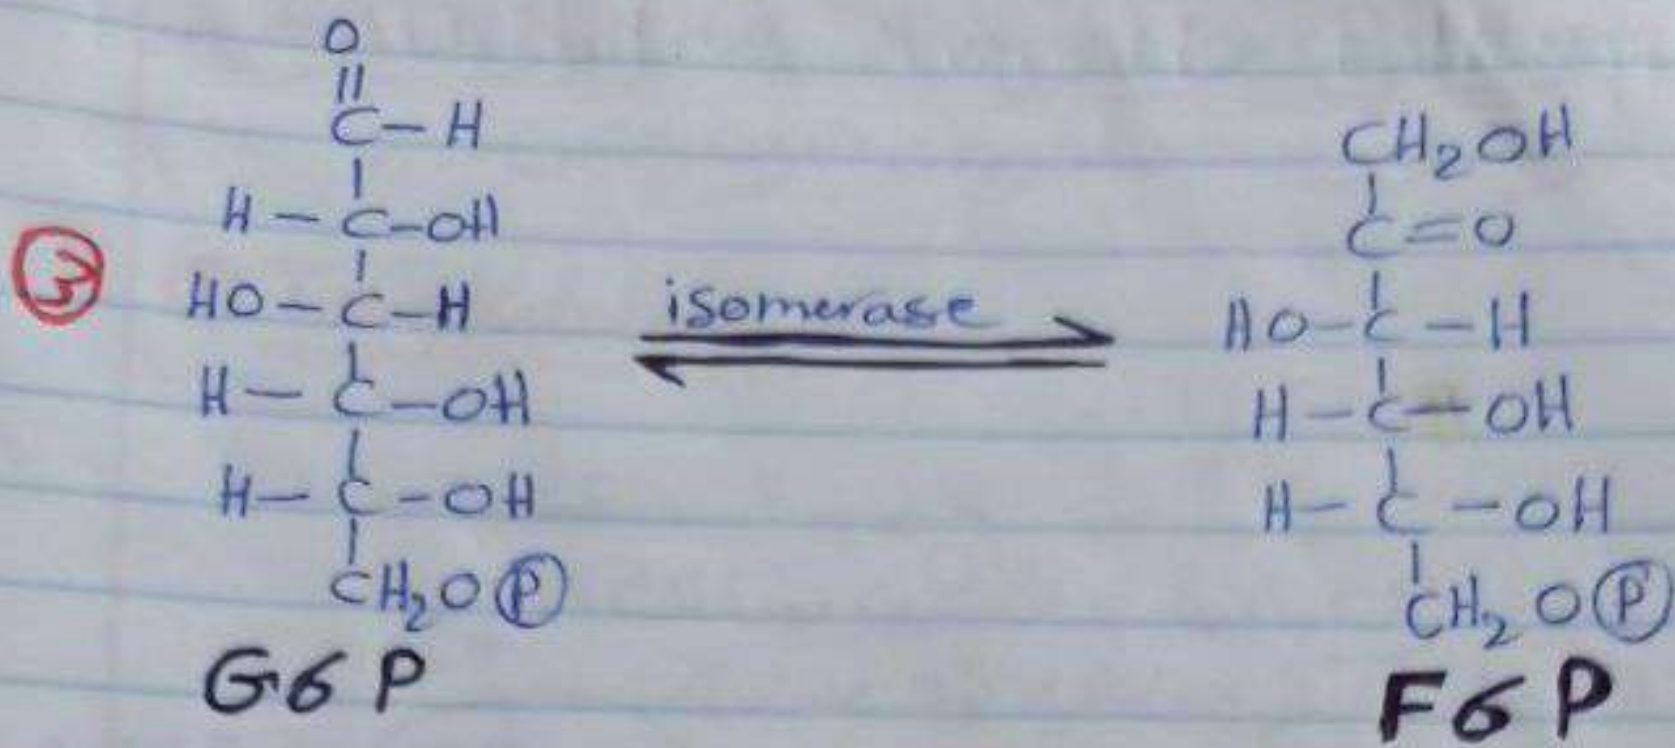 O
||
C-H
H-C-OH
HO-C-H
H-C-OH
H-C-OH
CH₂O(P)
G6P
③
isomerase
CH₂OH
C=O
HO-C-H
H-C-OH
H-C-OH
CH₂O(P)
F6P